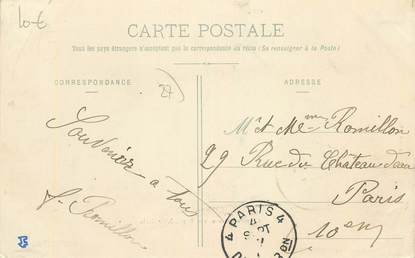 10€
CARTE POSTALE
Tous les pays étrangers n'acceptent pas la correspondance au recto (Se renseigner à la Poste)
CORRESPONDANCE
27
ADRESSE
Souvenir
a tous
Romillon
Mr et Mme Romillon
29 Rue du Château d'eau
Paris
10em
4 PARIS 4